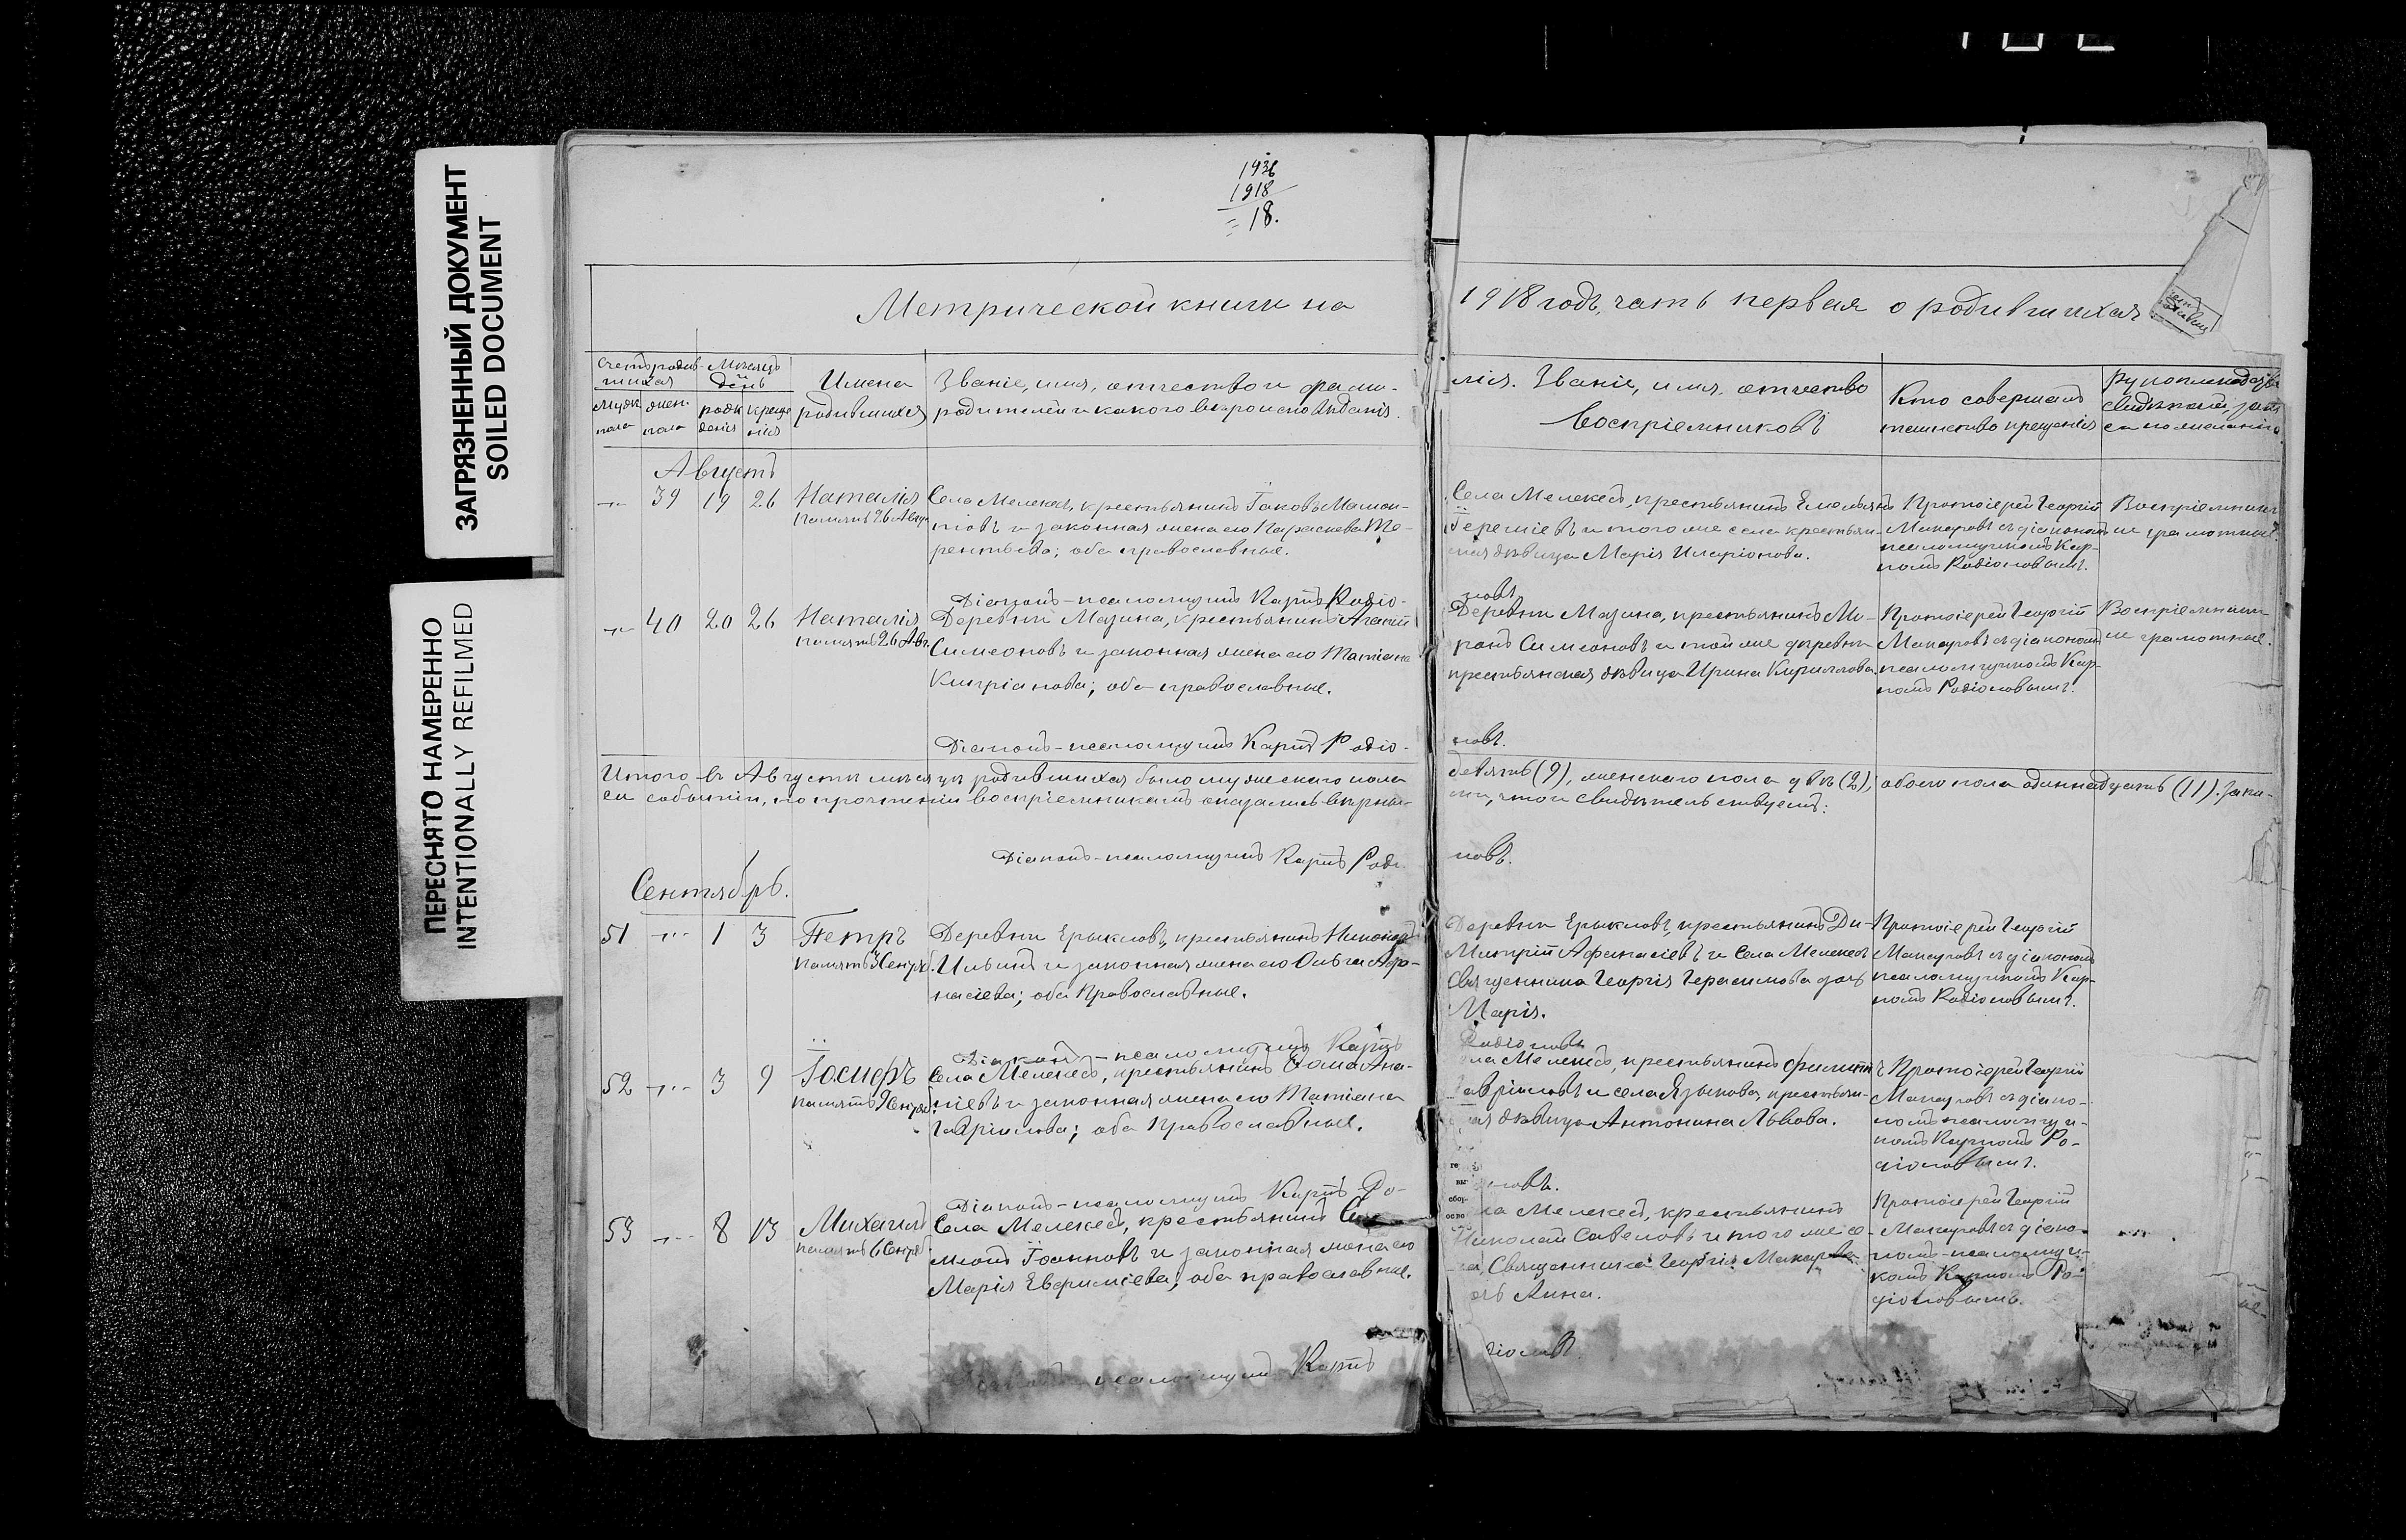 ЗАГРЯЗНЕННЫЙ ДОКУМЕНТ
SOILED DOCUMENT
ПЕРЕСНЯТО НАМЕРЕННО
INTENTIONALLY REFILMED
1936
1918
= 18.
Метрической книги на
1918 годъ, часть первая о родившихся
Счетъ родив-
шихся
Мѣсяцъ
и
день
Муж.
пола
жен.
пола
рож
денія
креще
нія
Имена
родившихся
Званіе, имя, отчество и фами-
родителей и какого вѣроисповѣданія.
лія. Званіе, имя, отчество
воспріемниковъ
Кто совершалъ
таинство крещенія
Августъ
39 19 26
Наталія
память 26 Авгу.
Села Мелекесъ, крестьянинъ Іаковъ Маман-
товъ и законная жена его Параскева Те-
рентьева; оба православные.
Села Мелекесъ, крестьянинъ Емельянъ
Іереміевъ и того же села крестьян-
ская дѣвица Марія Иларіонова.
Протоіерей Георгій
Макаровъ съ діакономъ
псаломщикомъ Кар-
помъ Родіоновымъ.
Воспріемники
не грамотные.
Діаконъ-псаломщикъ Карпъ Родіо-
новъ.
40 20 26
Наталія
память 26 Авг.
Деревни Мазина, крестьянинъ Агапій
Симеоновъ и законная жена его Татіана
Кипріанова; оба православные.
Деревни Мазина, крестьянинъ Ми-
ронъ Симеоновъ и той же деревни
крестьянская дѣвица Ирина Кириллова.
Протоіерей Георгій
Макаровъ съ діакономъ
псаломщикомъ Кар-
помъ Родіоновымъ.
Воспріемники
не грамотные.
Діаконъ-псаломщикъ Карпъ Родіо-
новъ.
Итого въ Августѣ мѣсяцѣ родившихся было мужескаго пола
девять (9), женскаго пола двѣ (2), обоего пола одиннадцать (11). Запи-
си событій, по прочтеніи воспріемникамъ оказались вѣрны-
ми, что и свидѣтельствуетъ:
Діаконъ-псаломщикъ Карпъ Родіо
новъ.
Сентябрь.
51 1 3
Петръ
память 3 Сентяб.
Деревни Ерыкловъ, крестьянинъ Никоноръ
Ильинъ и законная жена его Ольга Афа-
насіева; оба Православные.
Деревни Ерыкловъ, крестьянинъ Ди-
митрій Афанасіевъ и Села Мелекесъ
Священника Георгія Герасимова дочь
Марія.
Протоіерей Георгій
Макаровъ съ діакономъ
псаломщикомъ Кар-
помъ Родіоновымъ.
Діаконъ-псаломщикъ Карпъ
Родіоновъ
52 3 9
Іосифъ
память 9 Сентяб.
Села Мелекесъ, крестьянинъ Ѳома Ана-
ніевъ и законная жена его Татіана
Гавріилова; оба Православные.
ла Мелекесъ, крестьянинъ Филиппъ
Гавріиловъ и села Языкова, крестьян-
ая дѣвица Антонина Львова.
Протоіерей Георгій
Макаровъ съ діако-
номъ псаломщи-
комъ Карпомъ Ро-
діоновымъ.
Діаконъ-псаломщикъ Карпъ Ро-
новъ.
53 8 13
Михаилъ
память 6 Сентяб.
Села Мелекесъ, крестьянинъ Си-
меонъ Іоанновъ и законная жена его
Марія Евфиміева; оба православные.
ла Мелекесъ, крестьянинъ
Николай Савеловъ и того же се-
ла, Священника Георгія Макарова
очь Анна.
Протоіерей Георгій
Макаровъ съ діако-
номъ-псаломщи-
комъ Карпомъ Ро-
діоновымъ.
псаломщикъ Карпъ